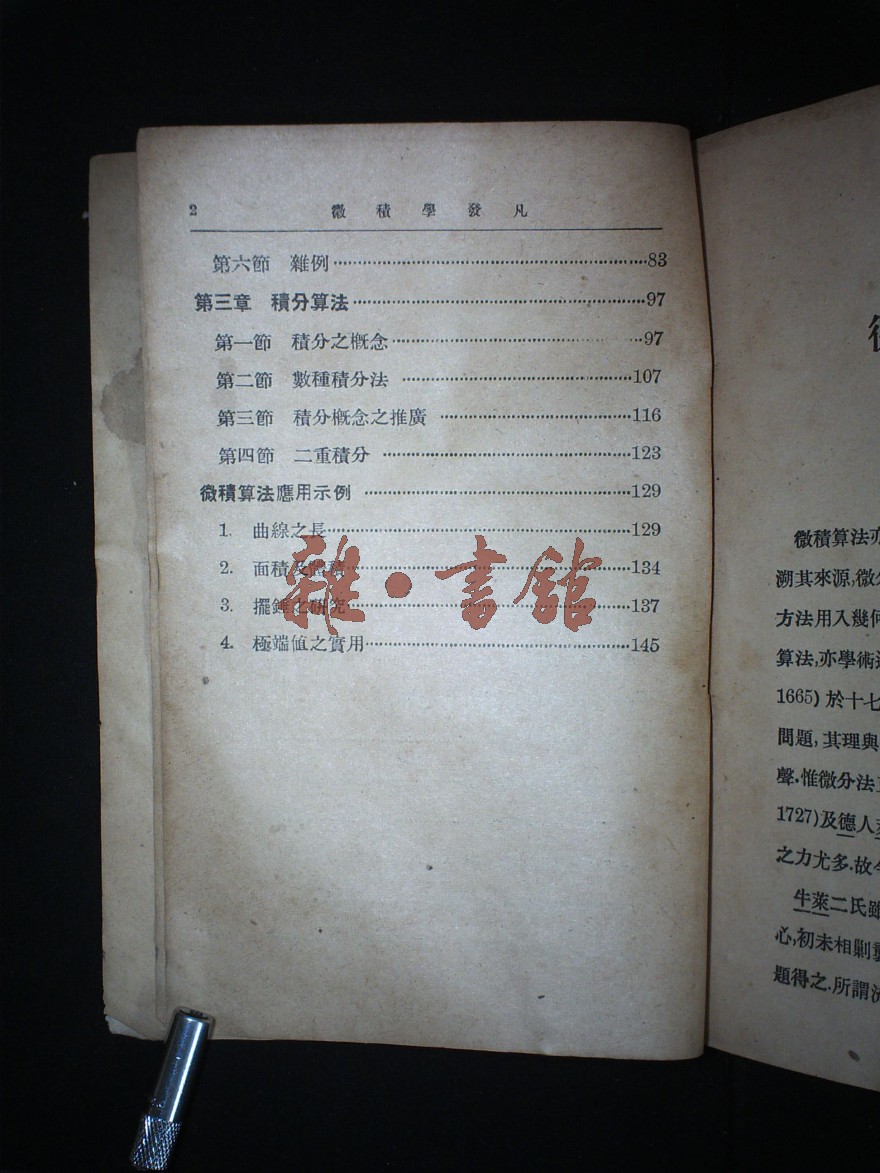 2 微積學發凡
第六節 雜例……83
第三章 積分算法……97
第一節 積分之概念……97
第二節 數種積分法……107
第三節 積分概念之推廣……116
第四節 二重積分……123
微積算法應用示例……129
1. 曲線之長……129
2. 面積及體積……134
3. 擺錘之研究……137
4. 極端値之實用……145
雜·書館
微積算法亦
溯其來源,微分
方法用入幾何
算法,亦學術
1665) 於十七
問題,其理與
聲.惟微分法
1727)及德人
之力尤多.故
牛萊二氏雖
心,初未相剿襲
題得之.所謂